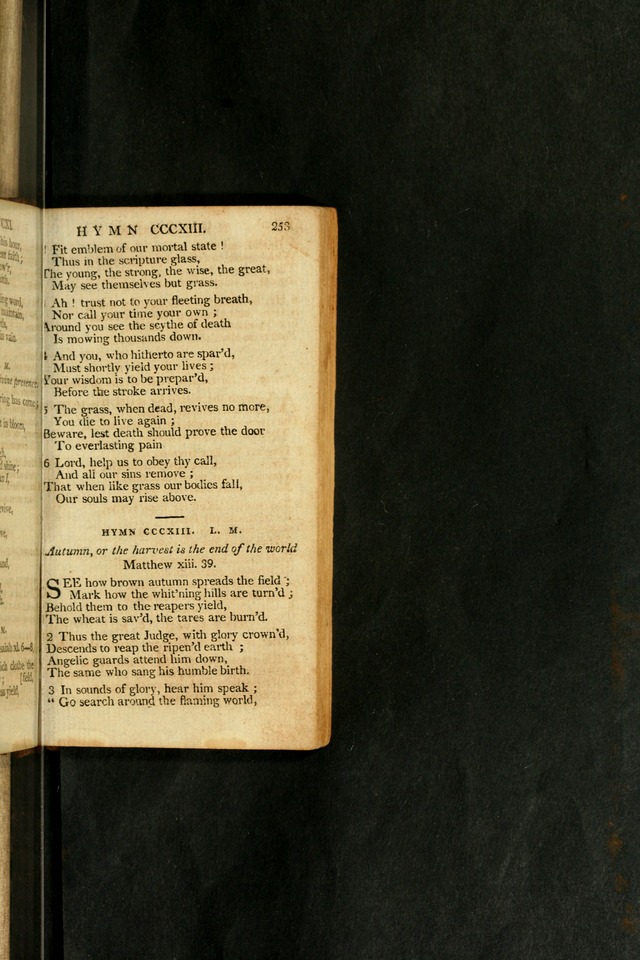 HYMN CCCXIII. 253
Fit emblem of our mortal state !
Thus in the scripture glass,
The young, the strong, the wise, the great,
May see themselves but grass.
Ah ! trust not to your fleeting breath,
Nor call your time your own ;
Around you see the scythe of death
Is mowing thousands down.
4 And you, who hitherto are spar'd,
Must shortly yield your lives ;
Your wisdom is to be prepar'd,
Before the stroke arrives.
5 The grass, when dead, revives no more,
You die to live again ;
Beware, lest death should prove the door
To everlasting pain
6 Lord, help us to obey thy call,
And all our sins remove ;
That when like grass our bodies fall,
Our souls may rise above.
HYMN CCCXIII. L. M.
Autumn, or the harvest is the end of the world
Matthew xiii. 39.
SEE how brown autumn spreads the field ;
Mark how the whit'ning hills are turn'd ;
Behold them to the reapers yield,
The wheat is sav'd, the tares are burn'd.
2 Thus the great Judge, with glory crown'd,
Descends to reap the ripen'd earth ;
Angelic guards attend him down,
The same who sang his humble birth.
3 In sounds of glory, hear him speak ;
" Go search around the flaming world,